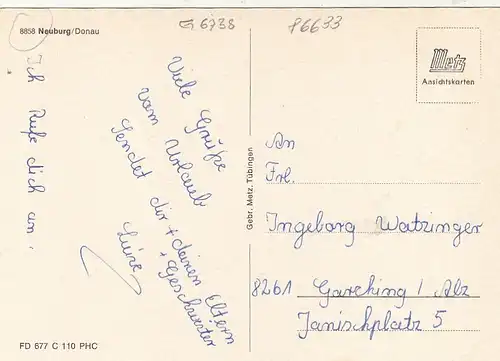 8858 Neuburg/Donau
G 6738
P6633
Metz
Ansichtskarten
Ich Rufe dich an!
Viele Grüße
vom Urlaub
sendet dir + deinen Eltern
+ Geschwister
Gebr. Metz, Tübingen
An
Frl.
Ingeborg Watzinger
8261 Garching / Alz
Janischplatz 5
FD 677 C 110 PHC